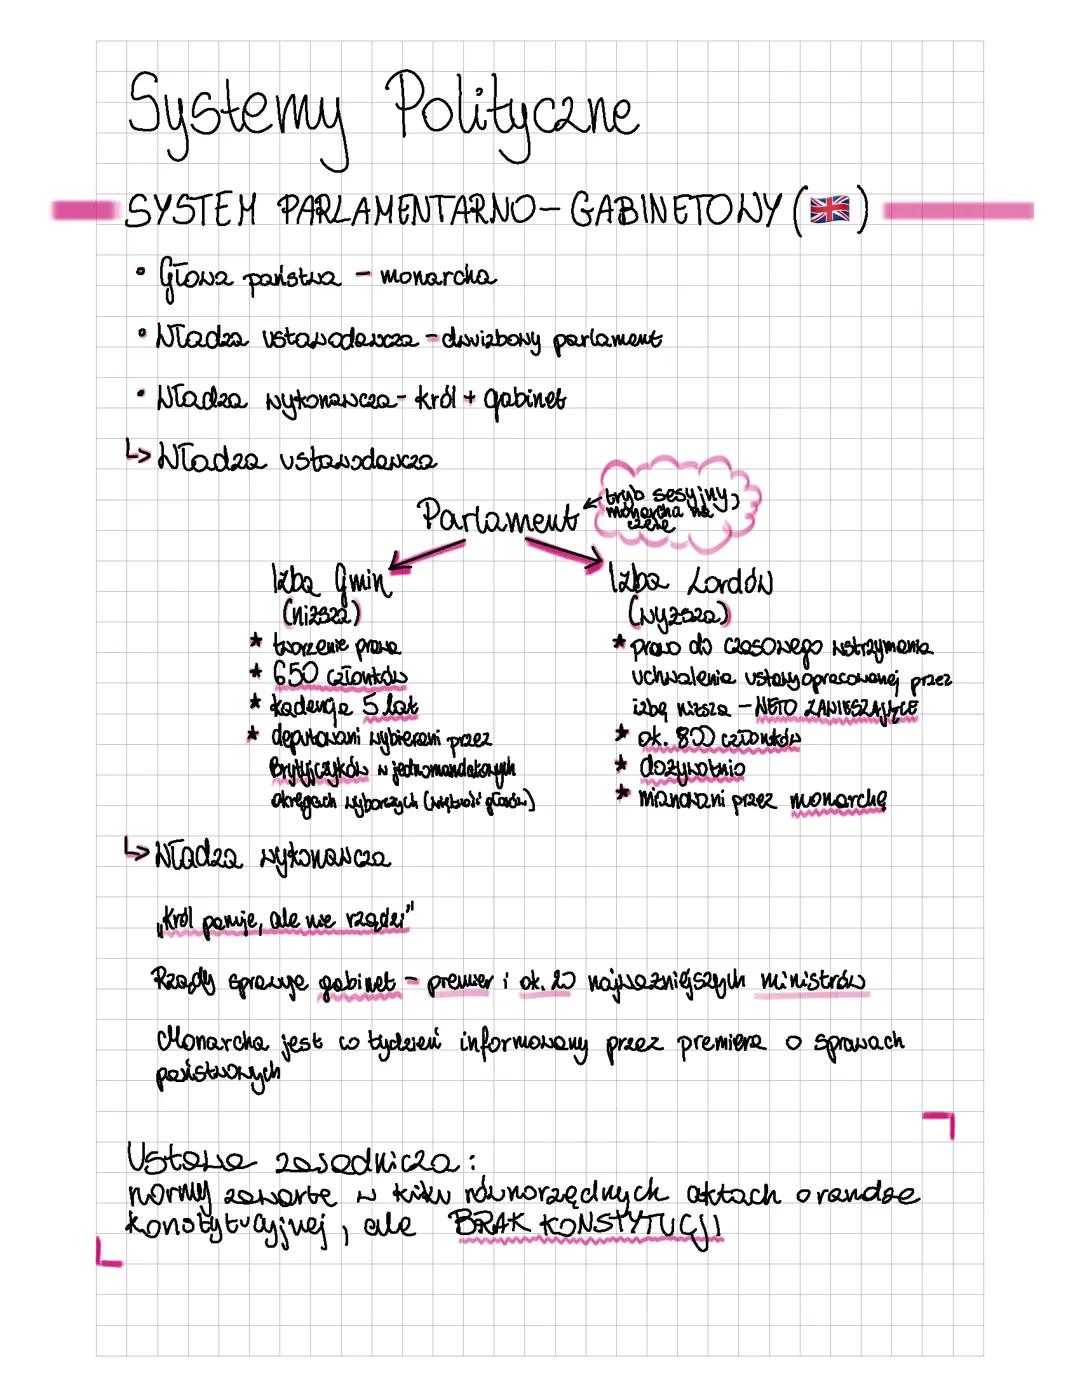 Systemy Polityczne
SYSTEM PARLAMENTARNO-GABINETOWY (🇬🇧)
• Głowa państwa - monarcha
• Władza ustawodawcza - dwuizbowy parlament
• Władza wykonawcza - król + gabinet
↳ Władza ustawodawcza
Parlament
tryb sesyjny,
monarcha na
czele
Izba Gmin
(niższa)
* tworzenie prawa
* 650 członków
* kadencja 5 lat
* deputowani wybierani przez
Brytyjczyków w jednomandatowych
okręgach wyborczych (większość głosów)
Izba Lordów
(wyższa)
* prawo do czasowego wstrzymania
uchwalenia ustawy opracowanej przez
izbę niższą - WETO ZAWIESZAJĄCE
* ok. 800 członków
* dożywotnio
* mianowani przez monarchę
↳ Władza wykonawcza
„Król panuje, ale nie rządzi"
Rządy sprawuje gabinet - premier i ok. 20 najważniejszych ministrów
Monarcha jest co tydzień informowany przez premiera o sprawach
państwowych
Ustawa zasadnicza:
normy zawarte w kilku równorzędnych aktach o randze
konstytucyjnej, ale BRAK KONSTYTUCJI